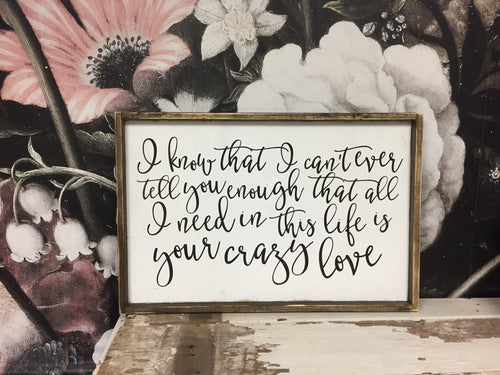 I know that I can't ever
tell you enough that all
I need in this life is
your crazy love